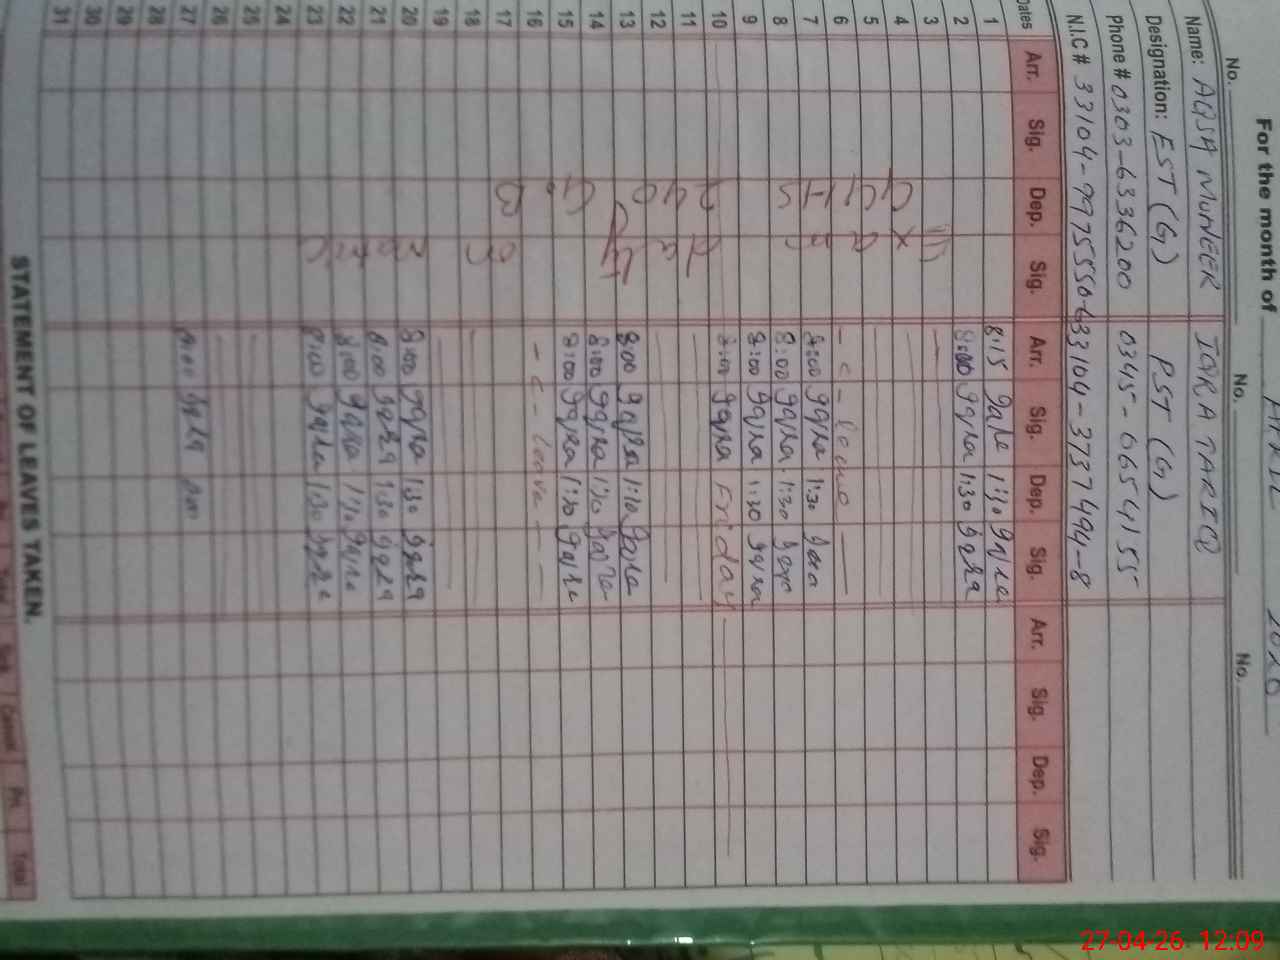 For the month of APRIL 2026
No. No. No.
Name: AQSA MUNEER IQRA TARIQ
Designation: EST (G) PST (G)
Phone # 0303-6336200 0345-0654155
N.I.C # 33104-9975550-6 33104-3737494-8
Dates Arr. Sig. Dep. Sig. Arr. Sig. Dep. Sig. Arr. Sig. Dep. Sig.
1 8:15 1:30
2 8:00 Iqra 1:30 Iqra
3
4
5
6 - C - leave
7 8:00 Iqra 1:30
8 8:00 Iqra 1:30
9 8:00 Iqra 1:30 Iqra
10 8:00 Iqra Friday
11
12
13 8:00 Iqra 1:10 Iqra
14 8:00 Iqra 1:30 Iqra
15 8:00 Iqra 1:30 Iqra
16 - C - leave
17
18
19
20 8:00 Iqra 1:30 Iqra
21 8:00 Iqra 1:30 Iqra
22 8:00 Iqra 1:30 Iqra
23 8:00 Iqra 1:30 Iqra
24
25
26
27 8:00 Iqra
28
29
30
31
GGHS 240 G.B
Exam duty on matric
STATEMENT OF LEAVES TAKEN.
Total
27-04-26 12:09